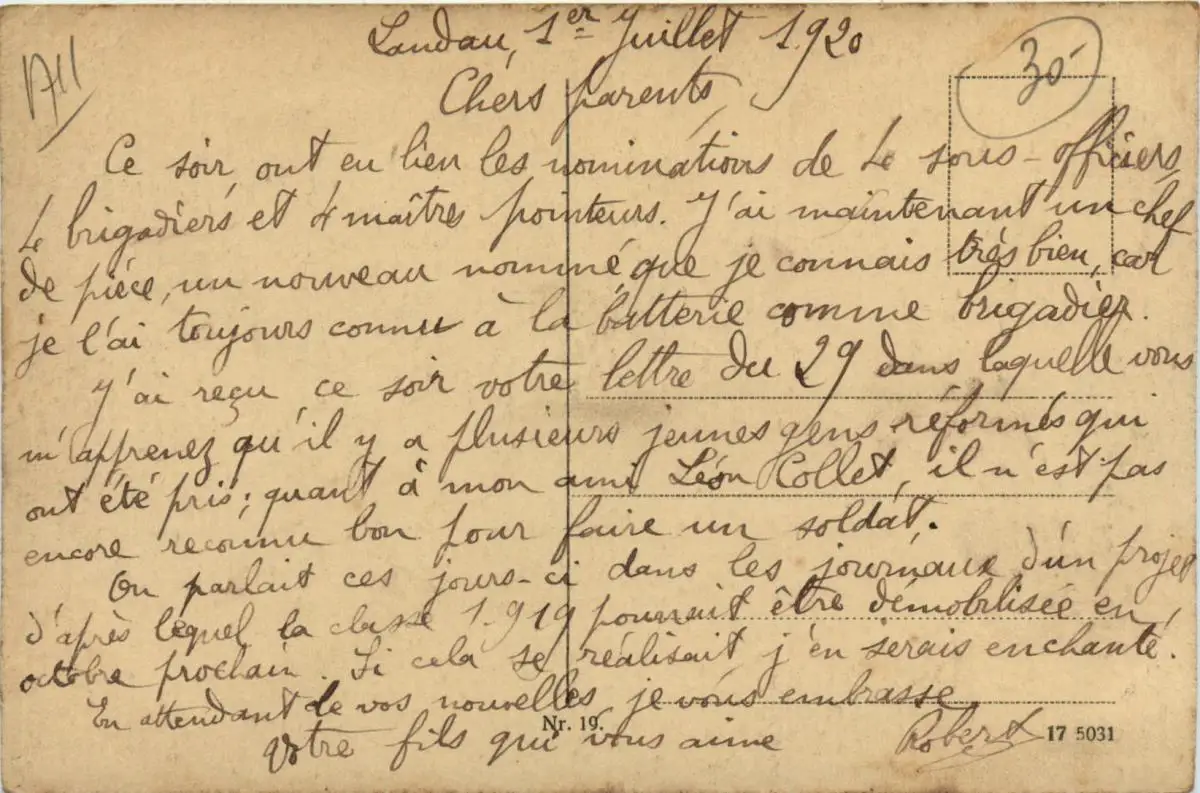 Landau, 1er Juillet 1920
All
30-
Chers parents,
Ce soir, ont eu lieu les nominations de 4 sous-officiers,
4 brigadiers et 4 maîtres pointeurs. J'ai maintenant un chef
de pièce, un nouveau nommé que je connais très bien, car
je l'ai toujours connu à la batterie comme brigadier.
J'ai reçu ce soir votre lettre du 29 dans laquelle vous
m'apprenez qu'il y a plusieurs jeunes gens réformés qui
ont été pris; quant à mon ami Léon Collet, il n'est pas
encore reconnu bon pour faire un soldat.
On parlait ces jours-ci dans les journaux d'un projet
d'après lequel la classe 1.919 pourrait être démobilisée en
octobre prochain. Si cela se réalisait j'en serais enchanté.
En attendant de vos nouvelles, je vous embrasse
Votre fils qui vous aime Robert
Nr. 19.
17 5031